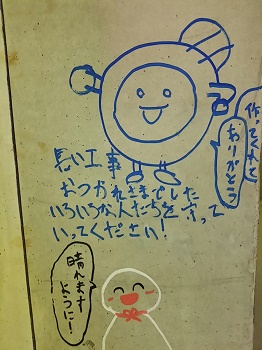 作ってくれて
ありがとう
長い工事
おつかれさまでした
いろいろな人たちを守って
いってください!
晴れます
ように!